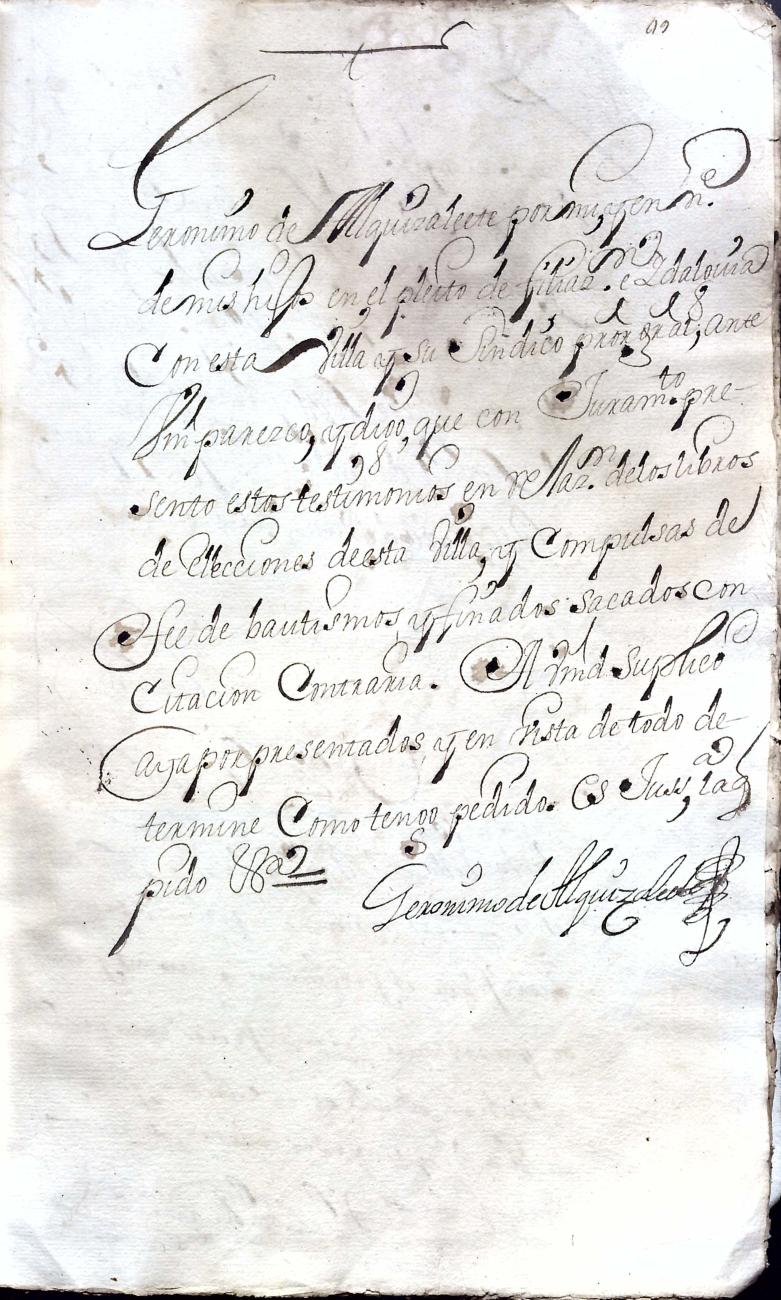 99
Geronimo de Alquizalete por mi, y en n.e
de mis hijos en el pleito de filiaz.on e Ydalguia
Con esta Villa y su Sindico pror gral, ante
Vm parezco, y digo, que con Juram.to pre-
sento estos testimonios en relaz.on de los libros
de elecciones de esta Villa, y Compulsas de
fee de bautismos, y finados sacados con
Citacion Contraria. A Vmd Suplico
aya por presentados, y en Vista de todo de-
termine Como tengo pedido. Es Juss,a la q
pido &a
Geronimo de Alquizalete